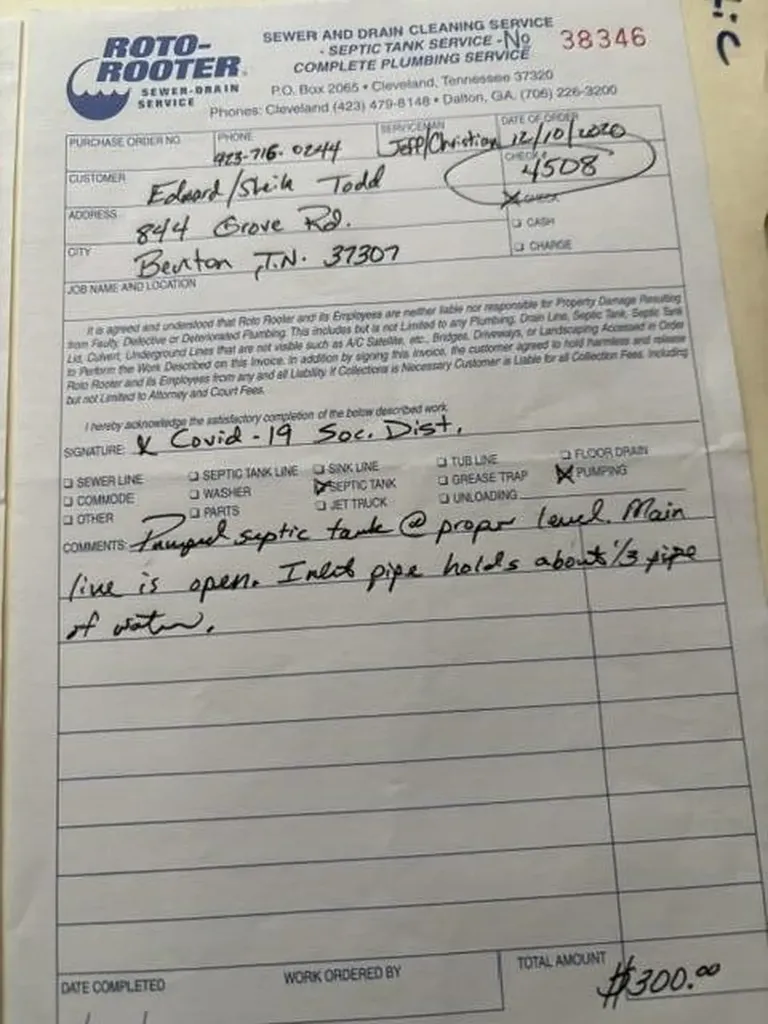 ROTO-ROOTER®
SEWER-DRAIN SERVICE
SEWER AND DRAIN CLEANING SERVICE
- SEPTIC TANK SERVICE -
COMPLETE PLUMBING SERVICE
No 38346
P.O. Box 2065 • Cleveland, Tennessee 37320
Phones: Cleveland (423) 479-8148 • Dalton, GA. (706) 226-3200
PURCHASE ORDER NO.
PHONE 423-716-0244
SERVICEMAN Jeff/Christian
DATE OF ORDER 12/10/2020
CUSTOMER Edward/Sheila Todd
CHECK # 4508
☒ CHECK
ADDRESS 844 Grove Rd.
☐ CASH
CITY Benton, T.N. 37307
☐ CHARGE
JOB NAME AND LOCATION
It is agreed and understood that Roto Rooter and its Employees are neither liable nor responsible for Property Damage Resulting
from Faulty, Defective or Deteriorated Plumbing. This includes but is not Limited to any Plumbing, Drain Line, Septic Tank, Septic Tank
Lid, Culvert, Underground Lines that are not visible such as A/C Satellite, etc., Bridges, Driveways, or Landscaping Accessed in Order
to Perform the Work Described on this Invoice. In addition by signing this invoice, the customer agreed to hold harmless and release
Roto Rooter and its Employees from any and all Liability. If Collections is Necessary Customer is Liable for all Collection Fees. Including
but not Limited to Attorney and Court Fees.
I hereby acknowledge the satisfactory completion of the below described work.
SIGNATURE: X Covid-19 Soc. Dist.
☐ SEWER LINE ☐ SEPTIC TANK LINE ☐ SINK LINE ☐ TUB LINE ☐ FLOOR DRAIN
☐ COMMODE ☐ WASHER ☒ SEPTIC TANK ☐ GREASE TRAP ☒ PUMPING
☐ OTHER ☐ PARTS ☐ JET TRUCK ☐ UNLOADING
COMMENTS: Pumped septic tank @ proper level. Main
line is open. Inlet pipe holds about 1/3 pipe
of water.
DATE COMPLETED
WORK ORDERED BY
TOTAL AMOUNT $300.00